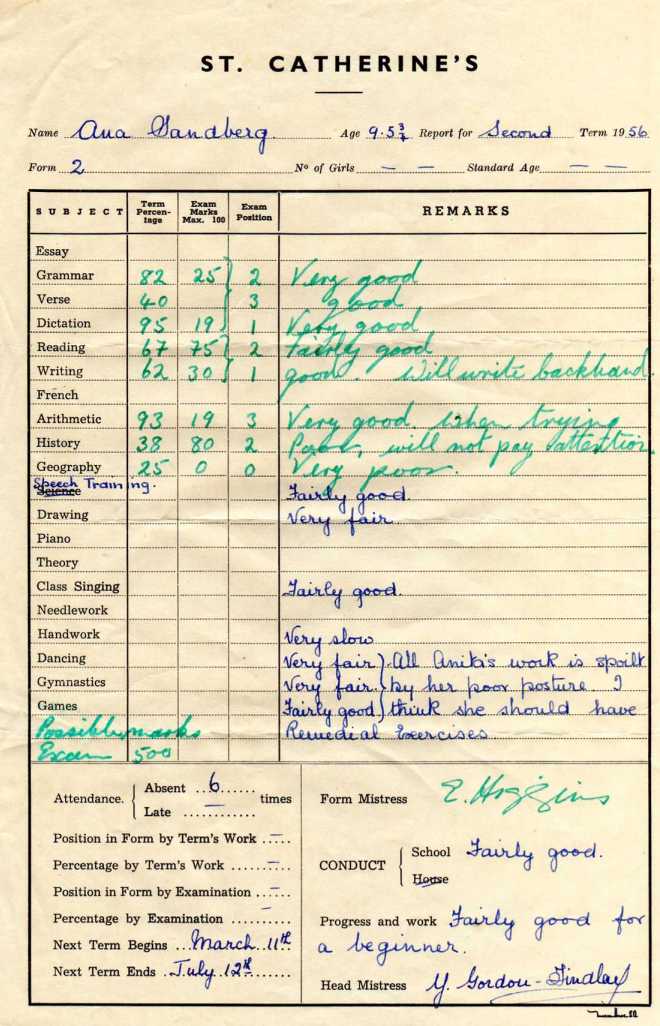 ST. CATHERINE'S
Name Ana Sandberg. Age 9.5¾ Report for Second Term 1956
Form 2 Nº of Girls — — Standard Age — —
SUBJECT Term Percen-tage Exam Marks Max. 100 Exam Position REMARKS
Essay
Grammar 82 25 2 Very good
Verse 40 3 good
Dictation 95 19 1 Very good
Reading 67 75 2 Fairly good
Writing 62 30 1 good. Will write backhand.
French
Arithmetic 93 19 3 Very good when trying
History 38 80 2 Poor, will not pay attention.
Geography 25 0 0 Very poor.
Speech Training.
Science Fairly good.
Drawing Very fair
Piano
Theory
Class Singing Fairly good.
Needlework
Handwork Very slow
Dancing Very fair) All Anita's work is spoilt
Gymnastics Very fair.) by her poor posture. I
Games Fairly good) think she should have
Possible marks Remedial Exercises
Exam 500
Attendance. { Absent ..6...... times
Late .— ............
Position in Form by Term's Work .—...
Percentage by Term's Work .....—...
Position in Form by Examination ..—....
Percentage by Examination ..—........
Next Term Begins ..March 11th
Next Term Ends .July 12th.......
Form Mistress E. Higgins
CONDUCT { School Fairly good.
House
Progress and work Fairly good for
a beginner.
Head Mistress Y. Gordon-Findlay